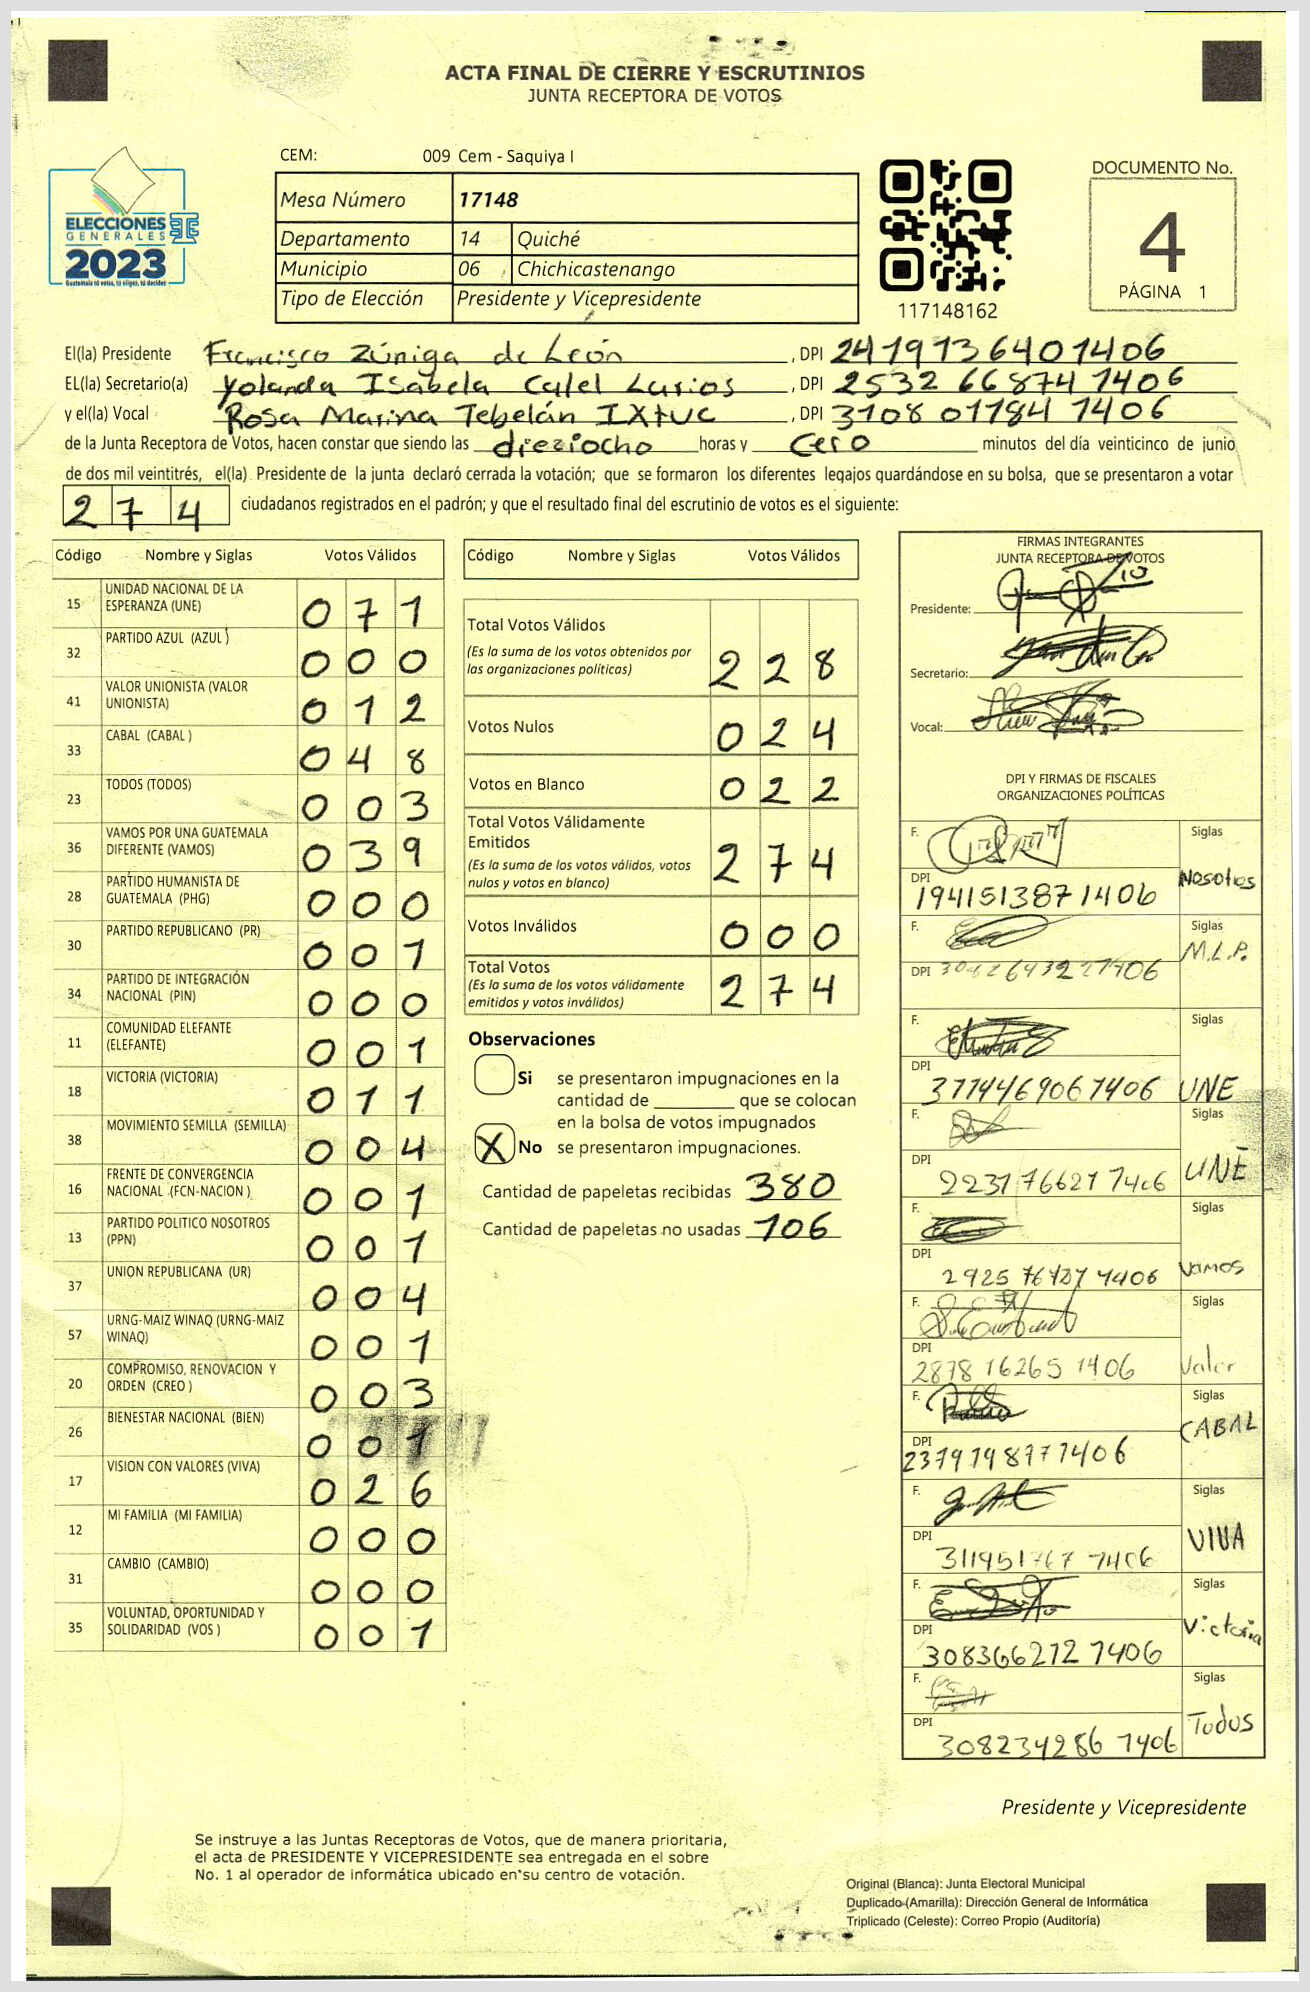 ACTA FINAL DE CIERRE Y ESCRUTINIOS
JUNTA RECEPTORA DE VOTOS
ELECCIONES
GENERALES
2023
Guatemala tú votas, tú eliges, tú decides
CEM: 009 Cem - Saquiya I
Mesa Número 17148
Departamento 14 Quiché
Municipio 06 Chichicastenango
Tipo de Elección Presidente y Vicepresidente
117148162
DOCUMENTO No.
4
PÁGINA 1
El(la) Presidente Francisco Zúniga de León , DPI 2419136401406
EL(la) Secretario(a) Yolanda Isabela Calel Larios , DPI 2532 66874 1406
y el(la) Vocal Rosa Marina Tebelán IXtuc , DPI 3108 01184 1406
de la Junta Receptora de Votos, hacen constar que siendo las dieziocho horas y cero minutos del día veinticinco de junio
de dos mil veintitrés, el(la) Presidente de la junta declaró cerrada la votación; que se formaron los diferentes legajos guardándose en su bolsa, que se presentaron a votar
274 ciudadanos registrados en el padrón; y que el resultado final del escrutinio de votos es el siguiente:
Código Nombre y Siglas Votos Válidos
15 UNIDAD NACIONAL DE LA ESPERANZA (UNE) 071
32 PARTIDO AZUL (AZUL ) 000
41 VALOR UNIONISTA (VALOR UNIONISTA) 012
33 CABAL (CABAL ) 048
23 TODOS (TODOS) 003
36 VAMOS POR UNA GUATEMALA DIFERENTE (VAMOS) 039
28 PARTIDO HUMANISTA DE GUATEMALA (PHG) 000
30 PARTIDO REPUBLICANO (PR) 001
34 PARTIDO DE INTEGRACIÓN NACIONAL (PIN) 000
11 COMUNIDAD ELEFANTE (ELEFANTE) 001
18 VICTORIA (VICTORIA) 011
38 MOVIMIENTO SEMILLA (SEMILLA) 004
16 FRENTE DE CONVERGENCIA NACIONAL (FCN-NACION ) 001
13 PARTIDO POLITICO NOSOTROS (PPN) 001
37 UNION REPUBLICANA (UR) 004
57 URNG-MAIZ WINAQ (URNG-MAIZ WINAQ) 001
20 COMPROMISO, RENOVACION Y ORDEN (CREO ) 003
26 BIENESTAR NACIONAL (BIEN) 001
17 VISION CON VALORES (VIVA) 026
12 MI FAMILIA (MI FAMILIA) 000
31 CAMBIO (CAMBIO) 000
35 VOLUNTAD, OPORTUNIDAD Y SOLIDARIDAD (VOS ) 001
Código Nombre y Siglas Votos Válidos
Total Votos Válidos 228
(Es la suma de los votos obtenidos por
las organizaciones políticas)
Votos Nulos 024
Votos en Blanco 022
Total Votos Válidamente
Emitidos 274
(Es la suma de los votos válidos, votos
nulos y votos en blanco)
Votos Inválidos 000
Total Votos 274
(Es la suma de los votos válidamente
emitidos y votos inválidos)
Observaciones
Si se presentaron impugnaciones en la
cantidad de ________ que se colocan
en la bolsa de votos impugnados
X No se presentaron impugnaciones.
Cantidad de papeletas recibidas 380
Cantidad de papeletas no usadas 106
FIRMAS INTEGRANTES
JUNTA RECEPTORA DE VOTOS
Presidente:
Secretario:
Vocal:
DPI Y FIRMAS DE FISCALES
ORGANIZACIONES POLÍTICAS
F. Siglas
DPI 1941513871406 Nosotros
F. Siglas
DPI M.L.P.
F. Siglas
DPI 3774469061406 UNE
F. Siglas
DPI 2231766271406 UNE
F. Siglas
DPI Vamos
F. Siglas
DPI 2878 16265 1406 Valor
F. Siglas
DPI CABAL
F. Siglas
DPI VIVA
F. Siglas
DPI 308366272 1406 Victoria
F. Siglas
DPI 308234286 1406 Todos
Presidente y Vicepresidente
Se instruye a las Juntas Receptoras de Votos, que de manera prioritaria,
el acta de PRESIDENTE Y VICEPRESIDENTE sea entregada en el sobre
No. 1 al operador de informática ubicado en su centro de votación.
Original (Blanca): Junta Electoral Municipal
Duplicado (Amarilla): Dirección General de Informática
Triplicado (Celeste): Correo Propio (Auditoría)